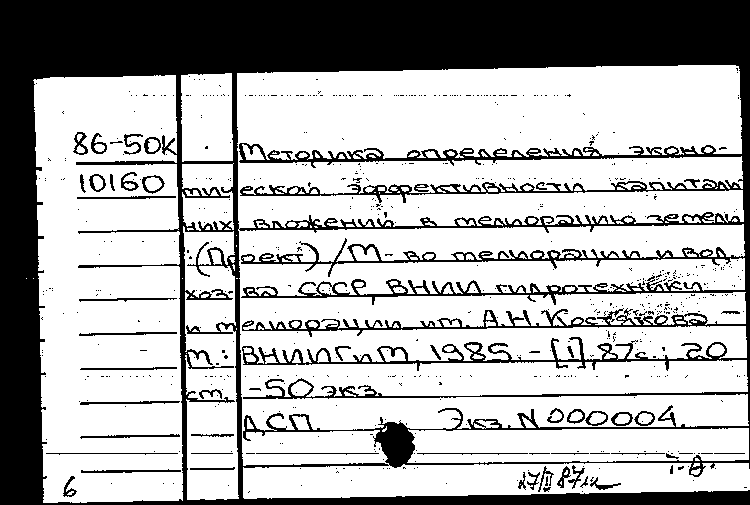 86-50к Методика определения эконо-
10160 мической эффективности капиталь
ных вложений в мелиорацию земель
:(Проект)/М-во мелиорации и вод.
хоз-ва СССР, ВНИИ гидротехники
и мелиорации им. А.Н.Костякова.-
М.: ВНИИГиМ, 1985.-[1],87с.; 20
см. -50 экз.
ДСП. Экз. N 000004.
6 27/II 87